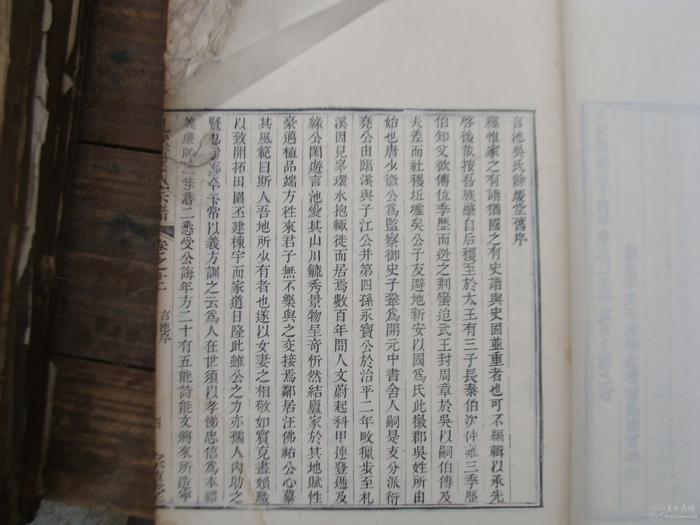 言池吳氏餘慶堂舊序
稽惟家之有譜猶國之有史譜與史固並重者也可不編輯以承先
啓後哉按吾族肇自后稷至於太王有三子長泰伯次仲雍三季歷
伯知父欲傳位季歷而逊之荆蠻迨武王封周章於吳以嗣伯傳及
夫差而社稷圻墟矣公子友避地新安以國爲氏此徽郡吳姓所由
始也唐少微公爲監察御史子鞏爲開元中書舍人嗣是支分派衍
堯公由臨溪與子江公并第四孫永寶公於治平二年畋獵步至札
溪因見峯環水抱輙徙而居焉數百年間人文蔚起科甲連登遞及
絲公閑遊言池愛其山川毓秀景物呈奇忻然結廬家於其地賦性
豪邁植品端方徃來君子無不樂與之交接焉鄰居汪佛祐公心慕
其風範曰斯人吾地所少有者也遂以女妻之相敬如賓克晝婦職
以致開拓田園丕建棟宇而家道日隆此雖公之力亦孺人内助之
賢也 常以義方訓之云爲人在世須以孝悌忠信爲本禮
義廉 二悉受公誨年方二十有五能詩能文將來所造寧
宗譜
卷之十二
言池序
四